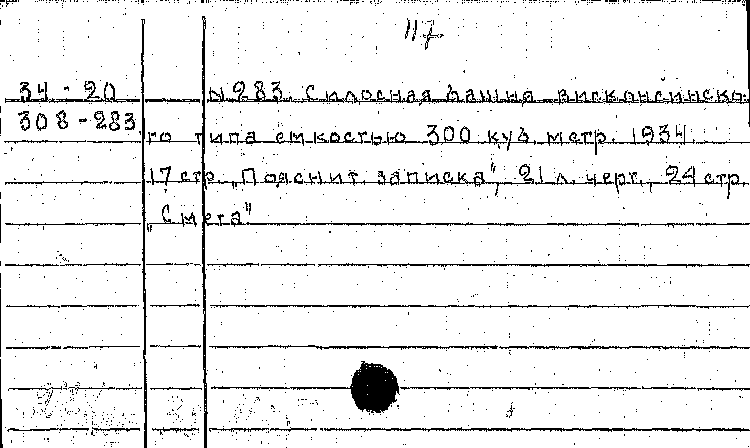 117
34-20 №283. Силосная башня висконсинско-
308-283 го типа емкостью 300 куб. метр. 1934.
17 стр. „Пояснит. записка", 21 л. черт., 24 стр.
„Смета"